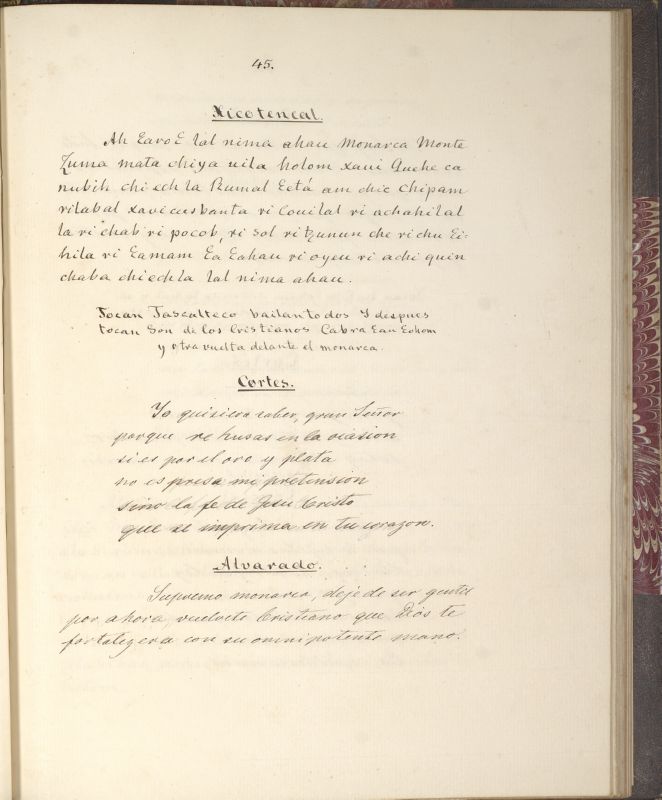 45.
Xicotencal.
Ah Eavo E lal nima ahau Monarca Monte
Zuma mata chiya uila holom xavi Quehe ca
nubih chi ech la Rumal Eetá am chic Chipam
rilabal xavi cusbanta ri Couilal ri achahilal
la ri chab ri pocob, ri sol ri tzunun che richu Ei-
hila ri Eamam Ea Eahau ri oyeu ri achi quin
chaba chi echla lal nima ahau.
Tocan Tascalteco bailan todos Y despues
tocan Son de los Cristianos Cabra Ean Eohom
y otra vuelta delante el monarca.
Cortes.
Yo quisiera saber, gran Señor
porque rehusas en la ocasion
si es por el oro y plata
no es presa mi pretension
sino la fe de Jesu Cristo
que se imprima en tu corazon.
Alvarado.
Supremo monarca, deje de ser gentil
por ahora vuelvete Cristiano que Dios te
fortalezera con su omnipotente mano.